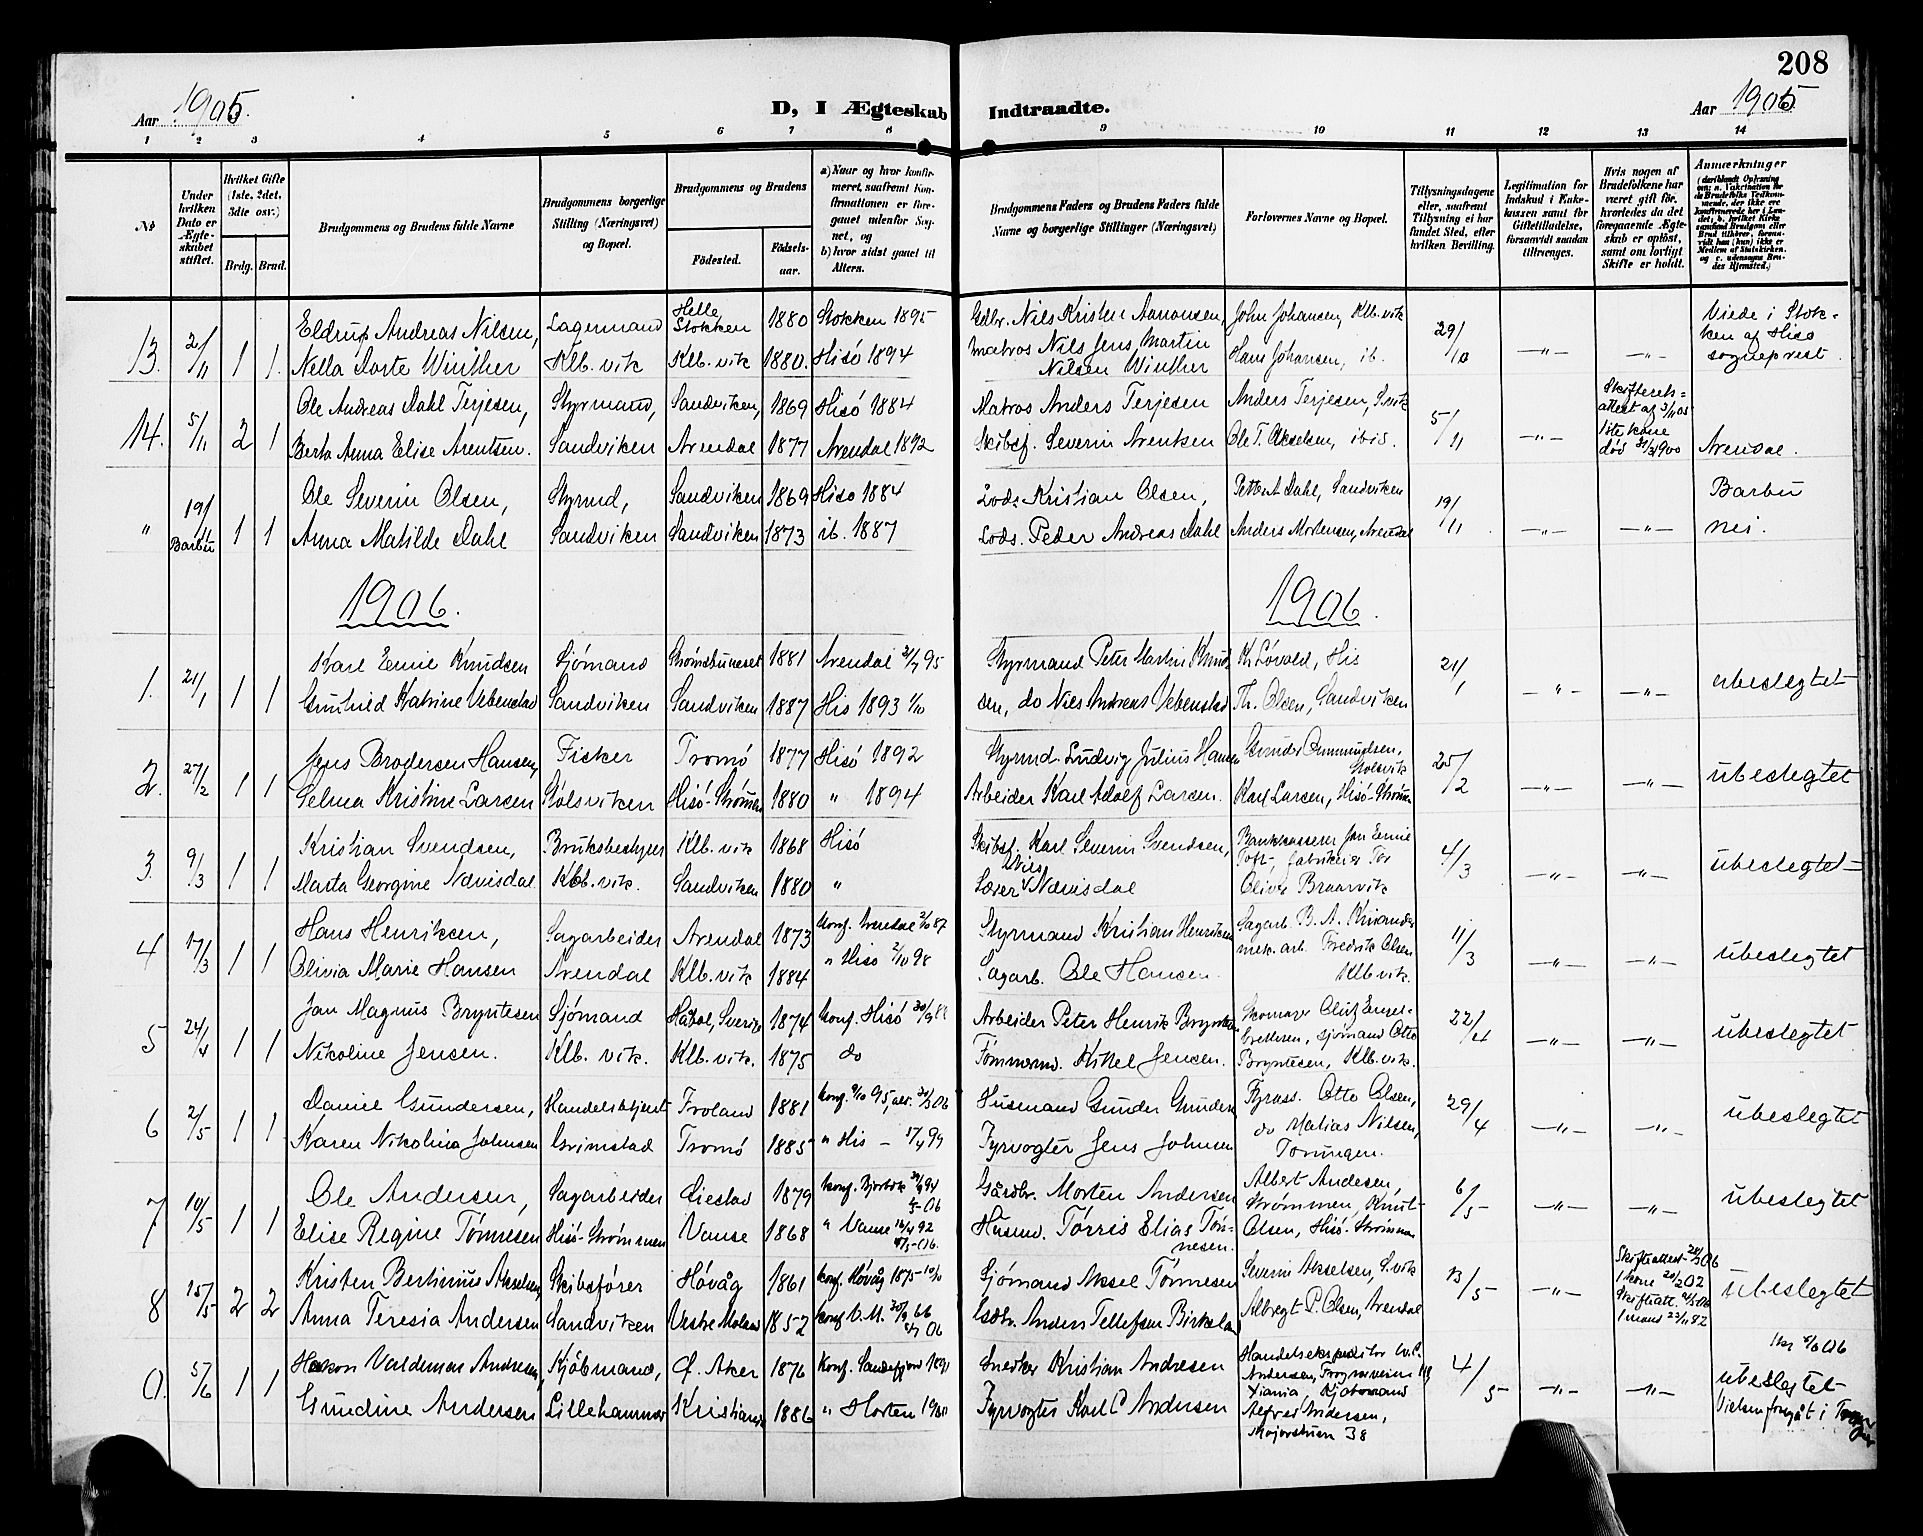 208
Aar 1905.
D, I Ægteskab
Indtraadte.
Aar 1905
1 2 3 4 5 6 7 8 9 10 11 12 13 14
№
Under hvilken Dato er Ægteskabet stiftet.
Hvilket Gifte (1ste, 2det, 3die osv.)
Brdg. Brud.
Brudgommens og Brudens fulde Navne
Brudgommens borgerlige Stilling (Næringsvei) og Bopæl.
Brudgommens og Brudens
Fødested.
Fødselsaar.
a) Naar og hvor konfirmeret, saafremt Konfirmationen er foregaaet udenfor Sognet, og
b) hvor sidst gaaet til Alters.
Brudgommens Faders og Brudens Faders fulde Navne og borgerlige Stillinger (Næringsvei)
Forlovernes Navne og Bopæl.
Tillysningsdagene eller, saafremt Tillysning ei har fundet Sted, efter hvilken Bevilling.
Legitimation for Indskud i Enkekassen samt for Giftetilladelse, forsaavidt saadan tiltrænges.
Hvis nogen af Brudefolkene har været gift før, hvorledes da det foregaaende Ægteskab er opløst, samt om lovligt Skifte er holdt.
Anmærkninger
13. 2/11 1 1.
Eldrup Andreas Nilsen, Lagermand Helle Stokken 1880 Stokken 1895
Nella Dorte Winther Klb.vik Klb.vik 1880. Hisö 1894
Gdbr. Nils Kristen Aanonsen, John Johansen, Klb.vik 29/10
Matros Nils Jens Martin Nilsen Winther Hans Johansen, ib. —"— —"—
Viede i Stokken af Hisø sogneprest.
14. 5/11 2 1
Ole Andreas Dahl Terjesen, Styrmand, Sandviken, 1869 Hisö 1884
Berta Anna Elise Arentsen. Sandviken Arendal 1877 Arendal 1892
Matros Anders Terjesen Anders Terjesen, S.vik 5/11
Skibsf. Severin Arentsen Ole T. Akselsen, ibid. —"—
Skifterets-attest af 3/11 05 1ste kone død 31/3 1900
Arendal.
" 19/11 Barbu 1 1
Ole Severin Olsen, Styrmd, Sandviken 1869 Hisø 1884
Anna Matilde Dahl Sandviken Sandviken 1873 ib. 1887
Lods Kristian Olsen, Dahl, Sandviken 19/11
Lods. Peder Andreas Dahl Anders Mortensen, Arendal —"— —"—
Barbu
nei.
1906.
1906.
1. 21/1 1 1
Karl Emil Knudsen Sjömand Strømsbuneset 1881 Arendal 95
Gunhild Katrine Vebenstad Sandviken Sandviken 1887 His 1893 1/10
Styrmand Peter Martin Knud- Kr. Løvold, His 21/1
sen, do Nils Andreas Vebenstad Th. Olsen, Sandviken —"— —"— ubeslegtet
2. 27/2 1 1
Jens Brodersen Hansen, Fisker Tromö 1877 Hisö 1892
Selma Kristine Larsen Kolsviken Hisö-Strömmen 1880 " 1894
Styrmd. Ludvig Julius Hansen Gunder Ommundsen, Kolsvik 25/2
Arbeider Karl Adolf Larsen. Karl Larsen, Hisö-Strömm —"— —"— ubeslegtet
3. 9/3 1 1
Kristian Svendsen, Bruksbestyrer Klb.vik 1868 Hisö
Marta Georgine Nævisdal Klb.vik. Sandviken 1880 "
Skibsf. Karl Severin Svendsen, Bankkasserer Jan Emil 4/3
Lærer Nils Nævisdal Toft, fabrikeier Tor Oliver Braarvik —"— —"— ubeslegtet
4 17/3 1 1
Hans Henriksen, Sagarbeider Arendal 1873 Konf. Arendal 2/10 87
Olivia Marie Hansen Arendal Klb.vik. 1884 " Hisö 2/10 98
Styrmand Kristian Henriksen Sagarb. B. A. 11/3
Sagarb. Ole Hansen. mek. arb. Fredrik Olsen Klb.vik. —"— —"— ubeslegtet
5 24/4 1 1
Jan Magnus Bryntesen Sjömand Håbol, Sverige 1874 konf. Hisö 30/9 88
Nikoline Jensen. Klb. vik. Klb.vik. 1875 do
Arbeider Peter Henrik Bryntesen Skomaker 22/4
Tømmermd. Kittel Jensen. sjømand Otto Bryntesen, Klb.vik. —"— —"— ubeslegtet
6 2/5 1 1.
Daniel Gundersen, Handelsbetjent Froland 1881 konf. 9/10 95,
Karen Nikolina Johnsen Grimstad Tromö 1885 " His — 99
Husmand Gunder Gundersen Fyrass. Otto Olsen, 29/4
Fyrvogter Jens Johnsen do Matias Nilsen, Torungen. —"— —"— ubeslegtet
7. 10/5 1 1
Ole Andersen, Sagarbeider Liestøl 1879 konf. 94
Elise Regine Tønnesen Hisö-Strömmen Vanse 1868 " Vanse 92
Gårdbr. Morten Andersen Albert Andesen, 6/5
Husmd. Tørris Elias Tønnesen. Strømmen, Knut Olsen, Hisö-Strømmen —"— —"— ubeslegtet
8 15/5 2 2
Kristen Bertinius Akselsen, Skibsfører Høvåg 1861 konf. Høvåg 1875
Anna Teresia Andersen Sandviken Vestre Moland 1852 konf. V.M. 66
Sjömand Aksel Tønnesen Severin Akselsen, S.vik 13/5
Gdbr. Anders Tellefsen Birkeland Albregt P. Olsen, Arendal —"—
Skifteattest 06
1 kone 02
Skifteatt. 06
1 mand 82
ubeslegtet
9. 5/6 1 1
Haakon Valdemar Andresen, Kjöbmand, Ø. Aker 1876 konf. Sandefjord 1891
Gundine Andersen Lillehammer Kristiania 1886 " Horten
Snedker Kristian Andresen Handelsekspeditør W.C. 4/5
Fyrvogter Karl C Andersen Andersen, Frognerveien Xiania, Kjøbmand Alfred Andersen, Majorstuen 38 —"— —"—
ubeslegtet
Vielsen foregåt i